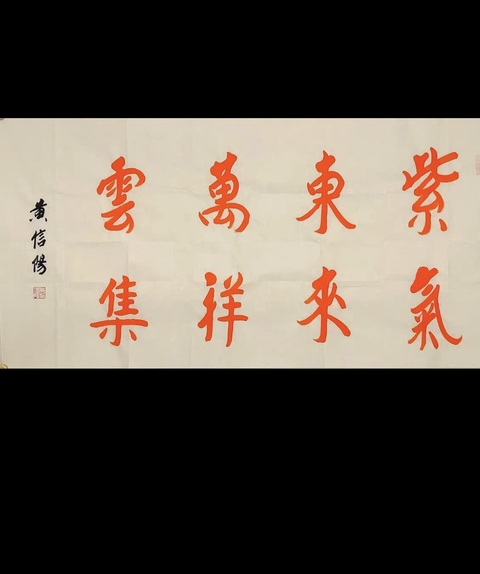 紫氣
東來
萬祥
雲集
黄信陽